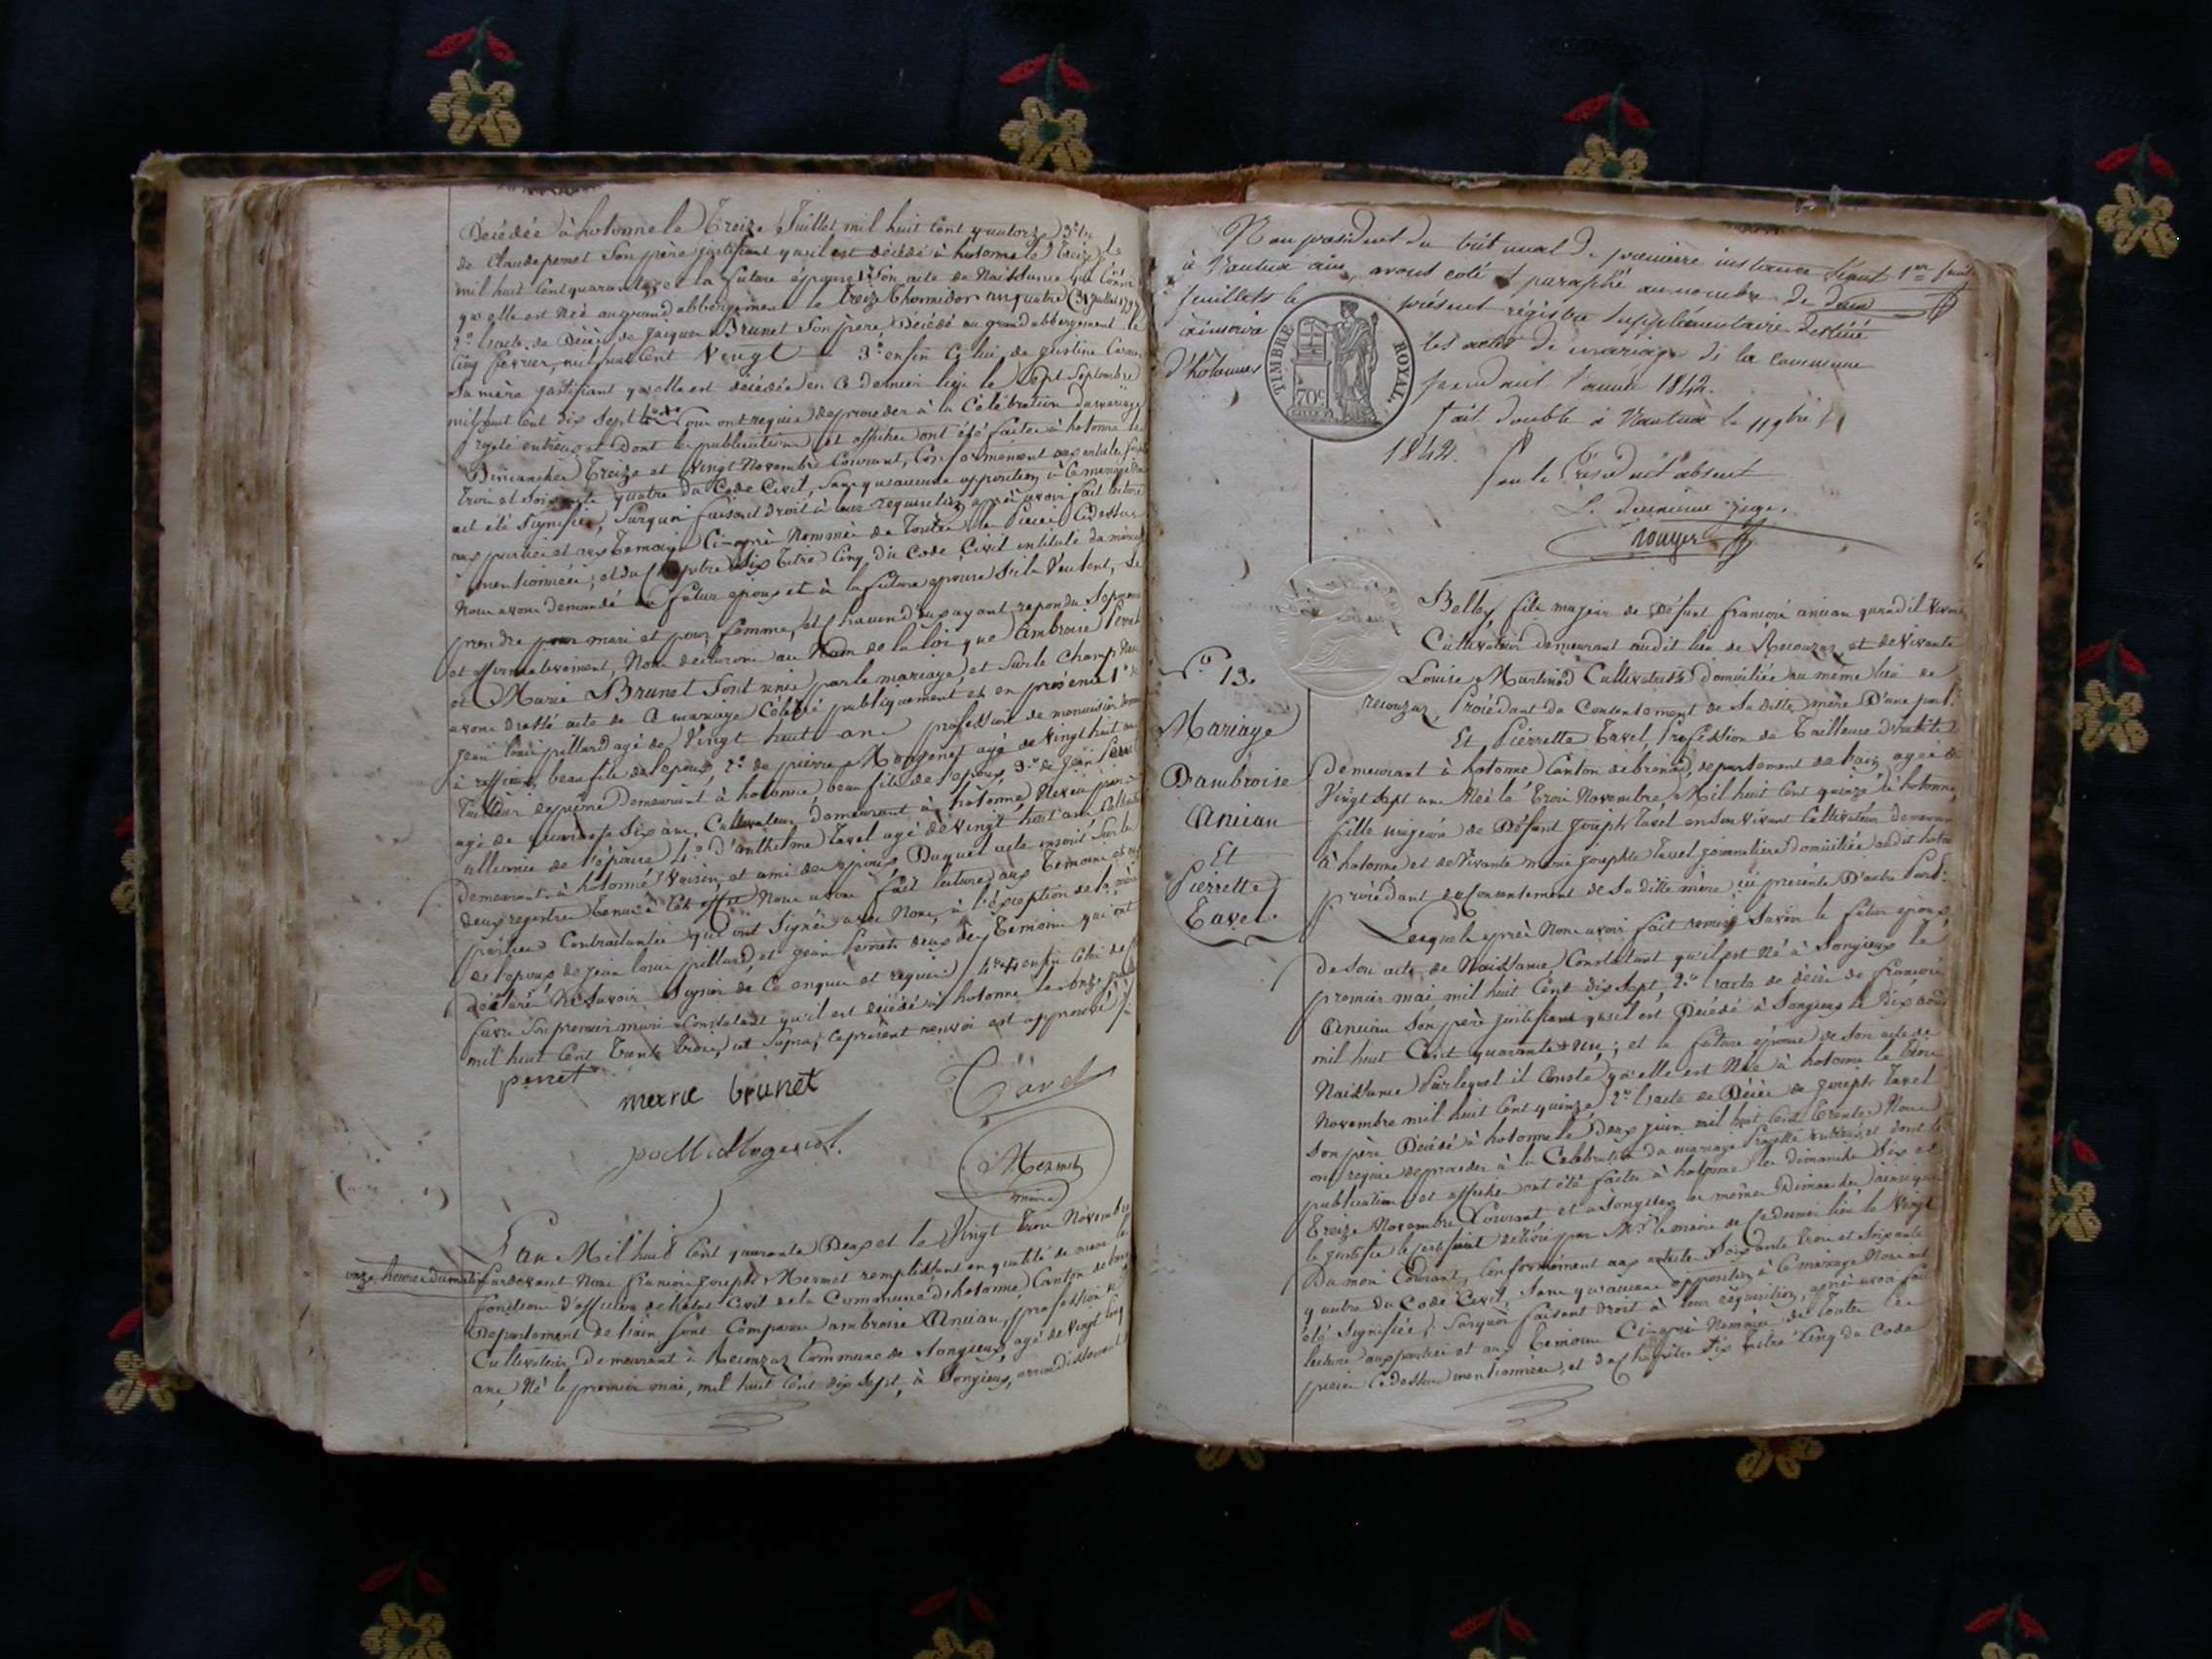 Décédée à hotonne le Treize Juillet mil huit Cent quatorze, 3°
de Claude perret Son père justifiant qu'il est décédé à hotonne le Treize
mil huit Cent quarante, et la future épouse 1° Son acte de Naissance
qu'elle est Née au grand abbergement le treize thermidor an quatre (31 juillet
2° l'acte de Décès de jacques Brunet Son père Décédé au grand abbergement le
Cinq fevrier, mil huit Cent Vingt 3° enfin Celui de justine
Sa mère justifiant qu'elle est décédée en Ce dernier lieu le Sept Septembre
mil huit Cent dix Sept Nous ont requis de proceder à la Célébration du mariage
projeté entre eux et dont les publications et affiches ont été faites à hotonne le
Dimanches Treize et Vingt Novembre Courant, Conformément aux articles
trois et Soixante quatre du Code Civil, Sans qu'aucune opposition à Ce mariage
ait été Signifiée, Surquoi faisant droit à leur requisition après avoir fait lecture
aux parties et aux temoins Ci-après Nommés de Toutes les Pièces Cidessus
mentionnées, et du Chapitre Six titre Cinq du Code Civil intitulé du mariage
Nous avons demandé au futur époux et à la future épouse S'ils Veulent, Se
prendre pour mari et pour femme, et chacun d'eux ayant repondu Séparement
et affirmativement, Nous declarons au Nom de la loi que Ambroise Perret
et Marie Brunet Sont unis par le mariage, et Sur le Champ Nous
avons dressé acte de Ce mariage Célébré publiquement et en présence 1° de
jean louis pillard agé de Vingt huit ans profession de menuisier
à beau fils de l'epoux, 2° de pierre Mongenet agé de Vingt huit ans
Tailleur de pierre Demeurant à hotonne, beau fils de l'époux, 3° de jean Perret
agé de quarante Six ans, Cultivateur, demeurant à hotonne Neveu
alliance de l'épouse, 4° d'anthelme Tavel agé de Vingt huit ans Cultivateur
Demeurant à hotonne Voisin et ami des époux Duquel acte inscrit Sur les
deux registres tenus à Cet effet Nous avons fait lecture aux Temoins et
parties Contractantes qui ont Signé avec Nous, à l'exception de la mère
de l'epoux, de jean louis pillard, et jean Perret deux des Temoins qui ont
déclaré Ne Savoir Signer de Ce enquis et requis / enfin Celui de
Son premier mari Constatant qu'il est décédé à hotonne le onze
mil huit Cent Trente trois, ut Supra, le présent renvoi est approuvé
perret
marie brunet
Tavel
Mongenet
Mermet
maire
L'an Mil huit Cent quarante Deux et le Vingt trois Novembre
onze heures du matin Pardevant Nous françois joseph Mermet remplissant en qualité de maire les
fonctions d'officier de l'état Civil de la Commune d'hotonne, Canton de
Département de l'ain Sont Comparus ambroise Ancian, profession de
Cultivateur, Demeurant à Recouzaz Commune de Songieux, agé de Vingt Cinq
ans, Né le premier mai, mil huit Cent dix Sept, à Songieux, arrondissement
Nous président du tribunal de première instance Séant
à Nantua ain, avons coté & paraphé au nombre de deux
feuillets le présent régistre Supplémentaire destiné
à inscrire les actes de mariage de la commune
d'hotonnes pendant l'année 1842.
TIMBRE ROYAL.
70c
fait double à Nantua le 11 9bre
1842.
Pour le Président absent
Le deuxième juge.
rouyer
Belley, fils majeur de Défunt françois ancian quand il Vivait
Cultivateur demeurant au dit lieu de Recouzaz, et de Vivante
Louise Martinod Cultivatrice domiciliée au même lieu de
recouzaz, Procédant du Consentement de Sa ditte mère D'une part.
Et Pierrette Tavel, Profession de Tailleuse d'habits
demeurant à hotonne Canton de brenod, departement de l'ain, agée de
Vingt Sept ans Née le Trois Novembre, Mil huit Cent quinze à hotonne,
fille majeure de Défunt Joseph Tavel en Son Vivant Cultivateur demeurant
à hotonne, et de Vivante marie josephte Tavel journalière domiciliée audit hotonne
procédant du Consentement de Sa ditte mère ici présente D'autre Part.
N° 13.
Mariage
D'ambroise
Ancian
Et
Pierrette
Tavel.
Lesquels après Nous avoir fait remise Savoir le futur époux,
de Son acte de Naissance, Constatant qu'il est Né à Songieux le
premier mai mil huit Cent dix Sept, 2° l'acte de décès de françois
Ancian Son père justifiant qu'il est Décédé à Songieux le Dix août
mil huit Cent quarante un; et la future épouse de Son acte de
Naissance Par lequel il Conste qu'elle est Née à hotonne le Trois
Novembre mil huit Cent quinze, 2° l'acte de Décès de joseph Tavel
Son père Décédé à hotonne le Deux juin mil huit Cent Trente, Nous
ont requis de proceder à la Celebration du mariage Projetté entre eux et dont les
publications et affiches ont été faites à hotonne les dimanches Six et
Treize Novembre Courant et à Songieux les mêmes Dimanches ainsi que
le justifie le certificat delivré par Mr. le maire de Ce dernier lieu le Vingt
Du mois Courant, Conformément aux articles Soixante Trois et Soixante
quatre du Code Civil, Sans qu'aucune opposition à Ce mariage Nous ait
été Signifiée, Surquoi faisant droit à leur requisition, après avoir fait
lecture aux parties et aux temoins Ci-après Nommés de Toutes les
pièces Cidessus mentionnées, et du Chapitre Six Titre Cinq du Code